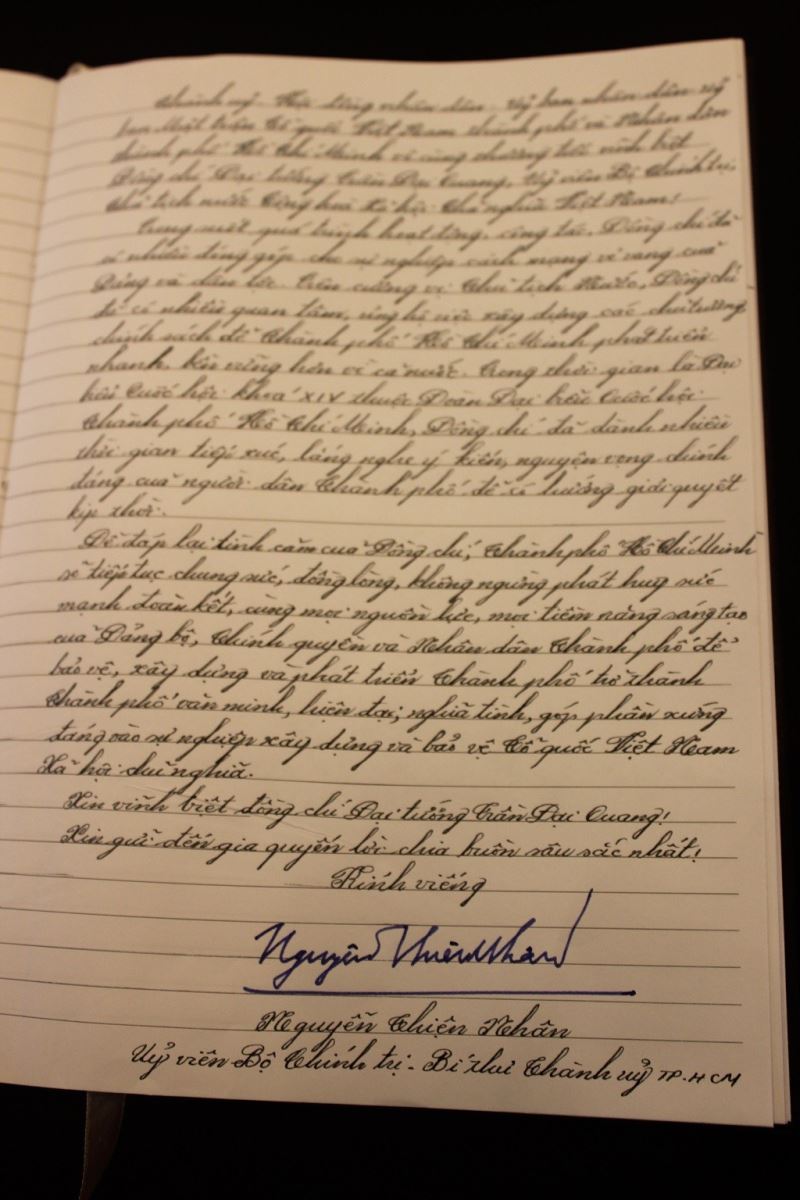 Thành uỷ - Hội đồng nhân dân - Uỷ ban nhân dân - Uỷ
ban Mặt trận Tổ quốc Việt Nam thành phố và Nhân dân
thành phố Hồ Chí Minh vô cùng thương tiếc vĩnh biệt
Đồng chí Đại tướng Trần Đại Quang, Uỷ viên Bộ Chính trị,
Chủ tịch nước Cộng hoà Xã hội Chủ nghĩa Việt Nam!
Trong suốt quá trình hoạt động, công tác, Đồng chí đã
có nhiều đóng góp cho sự nghiệp cách mạng vẻ vang của
Đảng và dân tộc. Trên cương vị Chủ tịch Nước, Đồng chí
đã có nhiều quan tâm, ủng hộ việc xây dựng các chủ trương,
chính sách để Thành phố Hồ Chí Minh phát triển
nhanh, bền vững hơn vì cả nước. Trong thời gian là Đại
biểu Quốc hội khoá XIV thuộc Đoàn Đại biểu Quốc hội
Thành phố Hồ Chí Minh, Đồng chí đã dành nhiều
thời gian tiếp xúc, lắng nghe ý kiến, nguyện vọng chính
đáng của người dân Thành phố để có hướng giải quyết
kịp thời.
Để đáp lại tình cảm của Đồng chí, Thành phố Hồ Chí Minh
sẽ tiếp tục chung sức, đồng lòng, không ngừng phát huy sức
mạnh đoàn kết, cùng mọi nguồn lực, mọi tiềm năng sáng tạo
của Đảng bộ, Chính quyền và Nhân dân Thành phố để
bảo vệ, xây dựng và phát triển Thành phố trở thành
Thành phố văn minh, hiện đại, nghĩa tình, góp phần xứng
đáng vào sự nghiệp xây dựng và bảo vệ Tổ quốc Việt Nam
Xã hội chủ nghĩa.
Xin vĩnh biệt đồng chí Đại tướng Trần Đại Quang!
Xin gửi đến gia quyến lời chia buồn sâu sắc nhất!
Kính viếng
Nguyễn Thiện Nhân
Nguyễn Thiện Nhân
Uỷ viên Bộ Chính trị - Bí thư Thành uỷ TP.HCM